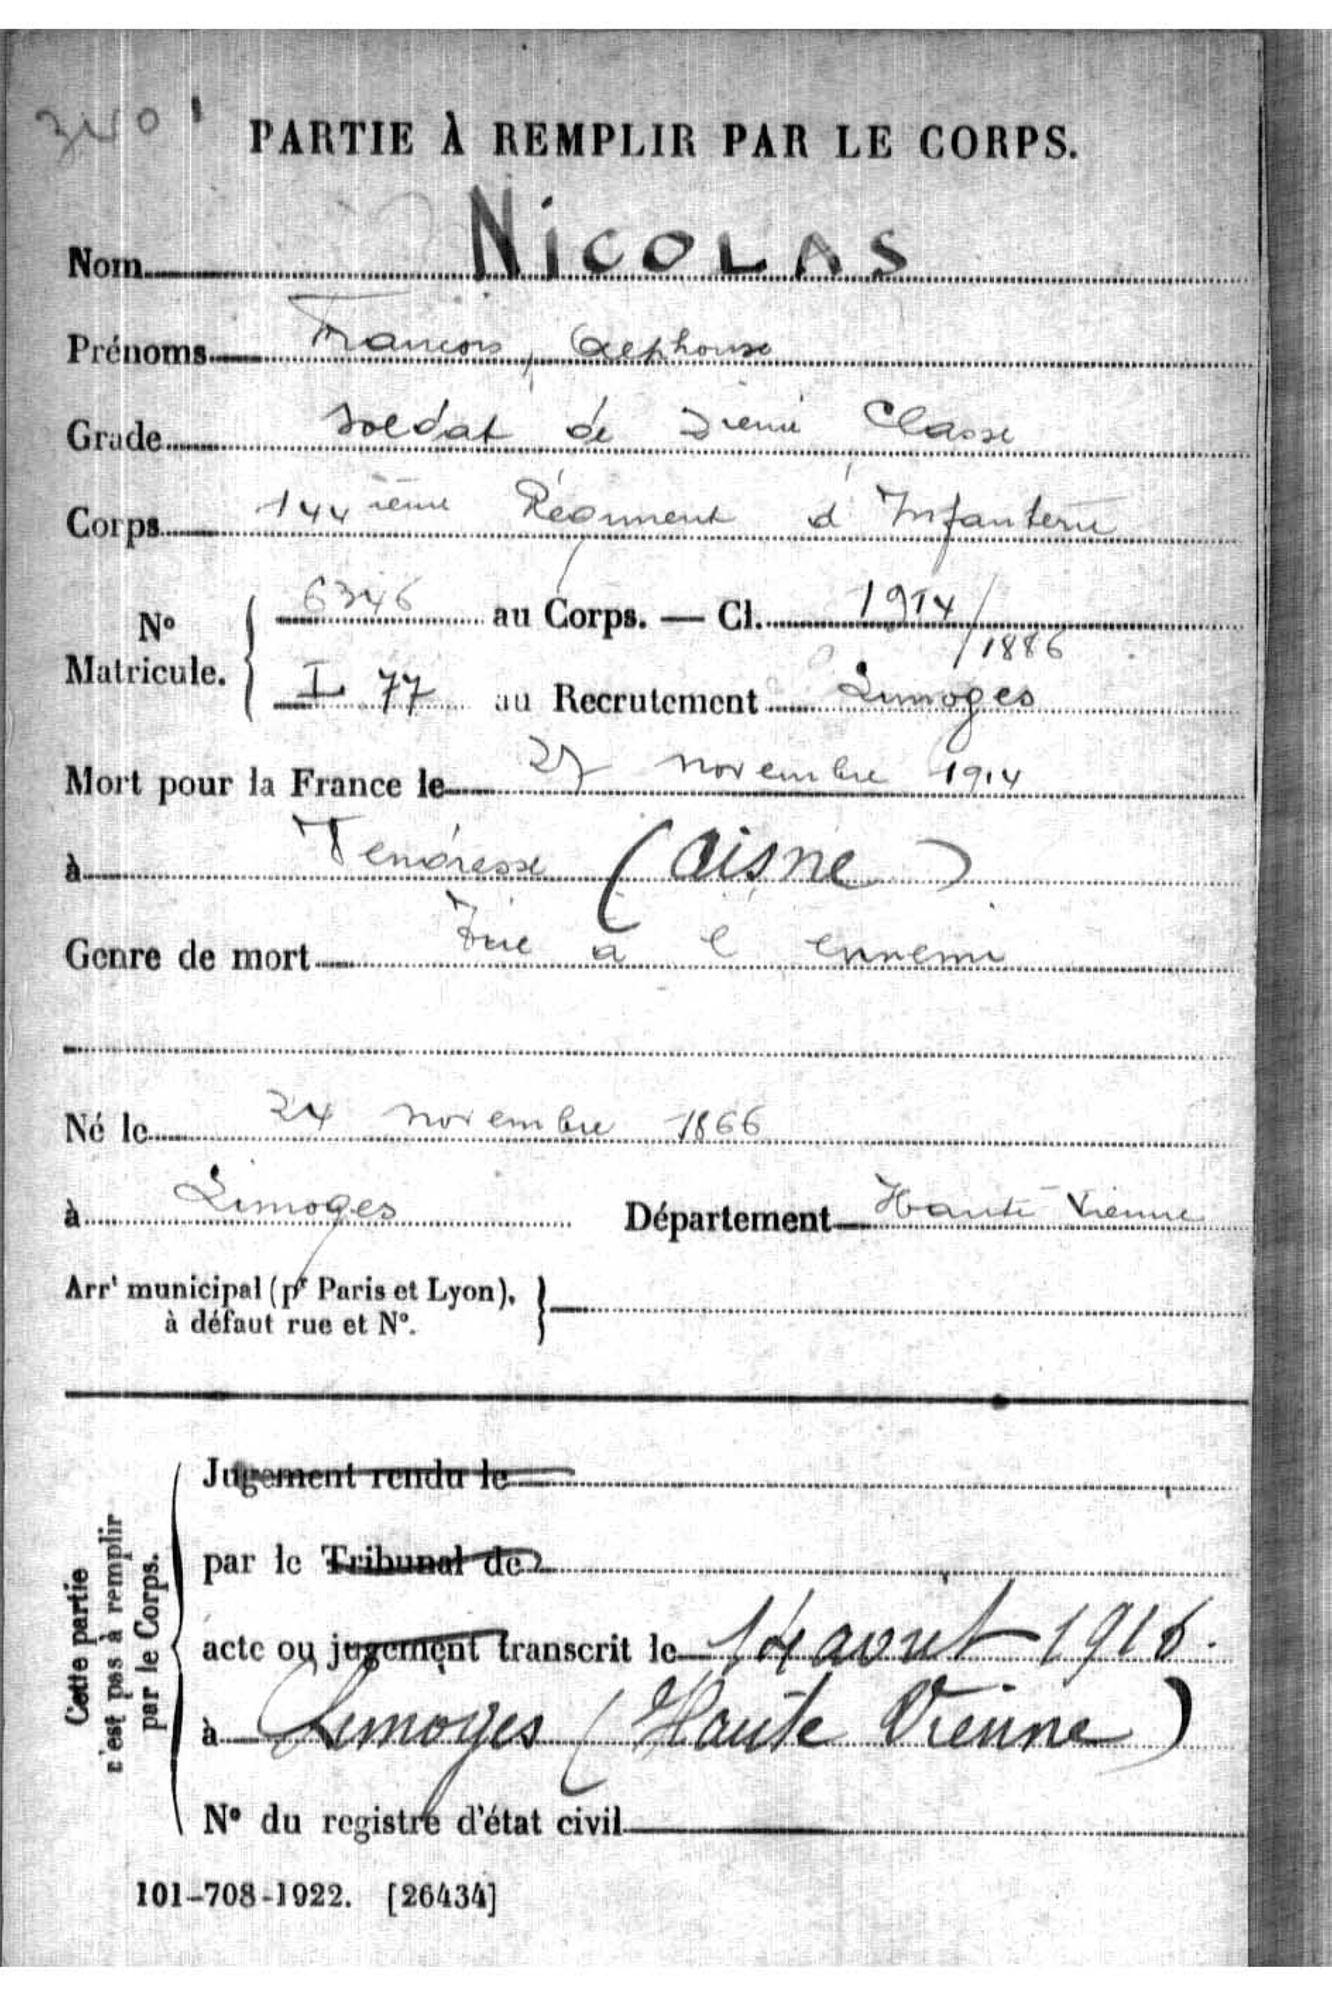 PARTIE À REMPLIR PAR LE CORPS.
Nom NiCOLAS
Prénoms François, Alphonse
Grade Soldat de 2ieme Classe
Corps 144 ieme Régiment d'Infanterie
N° Matricule. 6346 au Corps. — Cl. 1914 / 1886
I 77 au Recrutement Limoges
Mort pour la France le 27 novembre 1914
à Vendresse (Aisne)
Genre de mort Tué a l ennemi
Né le 24 novembre 1866
à Limoges Département Haute Vienne
Arrt municipal (pr Paris et Lyon),
à défaut rue et N°.
Cette partie
n'est pas à remplir
par le Corps.
Jugement rendu le
par le Tribunal de
acte ou jugement transcrit le 14 avril 1916.
à Limoges (Haute Vienne)
N° du registre d'état civil
101-708-1922. [26434]